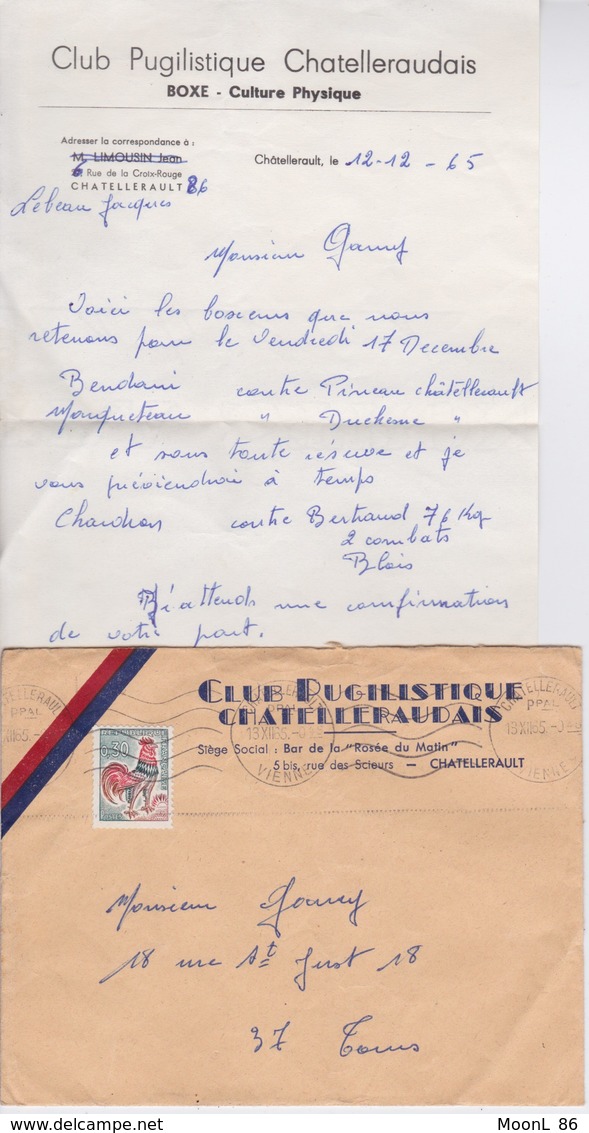 Club Pugilistique Chatelleraudais
BOXE - Culture Physique
Adresser la correspondance à :
M. LIMOUSIN Jean
6 Rue de la Croix-Rouge
CHATELLERAULT 86
Lebeau Jacques
Châtellerault, le 12-12-65
Monsieur
Voici les boxeurs que nous
retenons pour le Vendredi 17 Decembre
Bendani contre Pineau châtellerault
Mouqueteau " Duchesne "
et sous toute réserve et je
vous préviendrai à temps
Chardron contre Bertrand 76 Kg
2 combats
Blois
J'attends une confirmation
de votre part.
CLUB PUGILISTIQUE
CHATELLERAUDAIS
Siège Social : Bar de la "Rosée du Matin"
5 bis, rue des Scieurs — CHATELLERAULT
CHATELLERAULT
PPAL
13 XII 65
VIENNE
0,30
Monsieur
18 rue St Just 18
37 Tours
MoonL 86